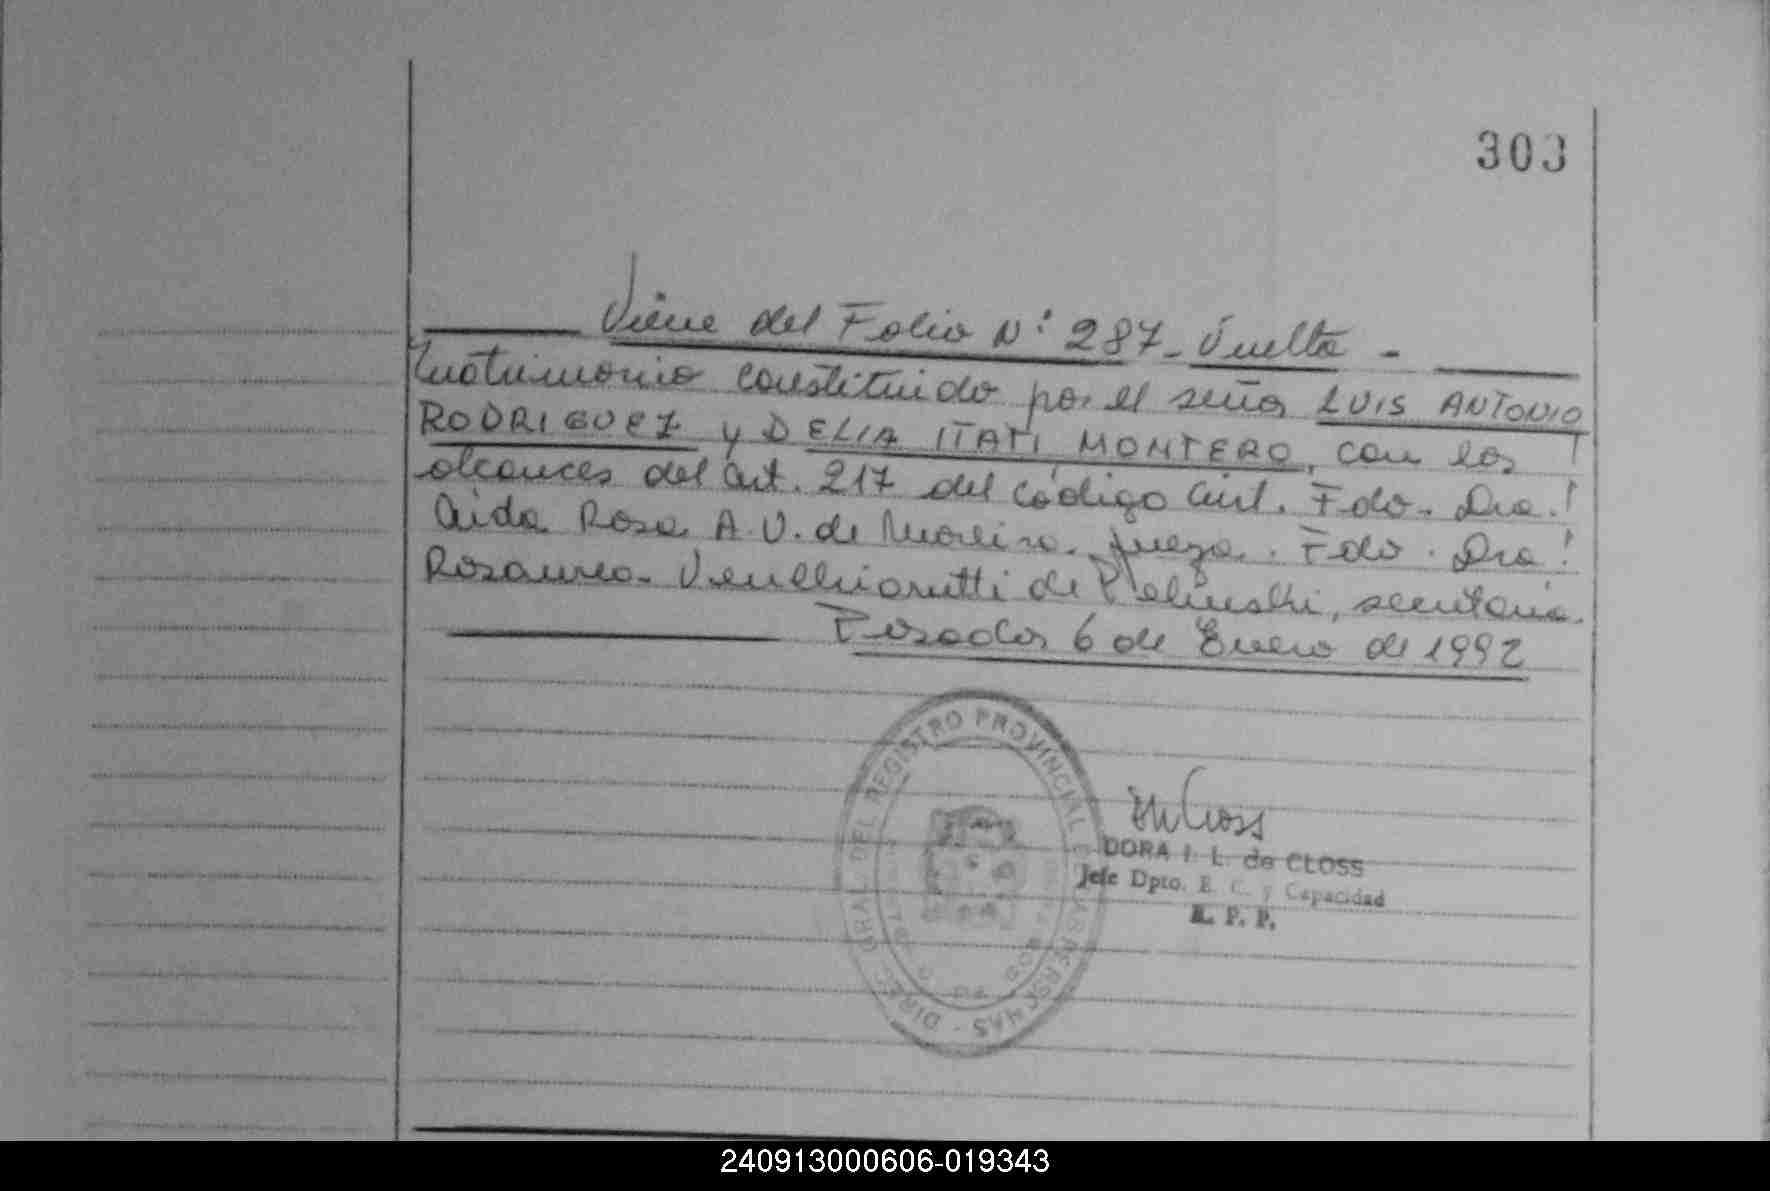 303
Viene del Folio N° 287 - Vuelta -
matrimonio constituido por el señor LUIS ANTONIO
RODRIGUEZ y DELIA ITATI MONTERO, con los
alcances del Art. 217 del Código Civil. Fdo. Dra.
Aida Rosa A. V. de Moreira. Jueza. Fdo. Dra.
Rosaura Venchiarutti de, secretaria.
Posadas 6 de Enero de 1992
DIREC. GRAL. DEL REGISTRO PROVINCIAL DE LAS PERSONAS
DORA I. L. de CLOSS
Jefe Dpto. E. C. y Capacidad
R. P. P.
240913000606-019343